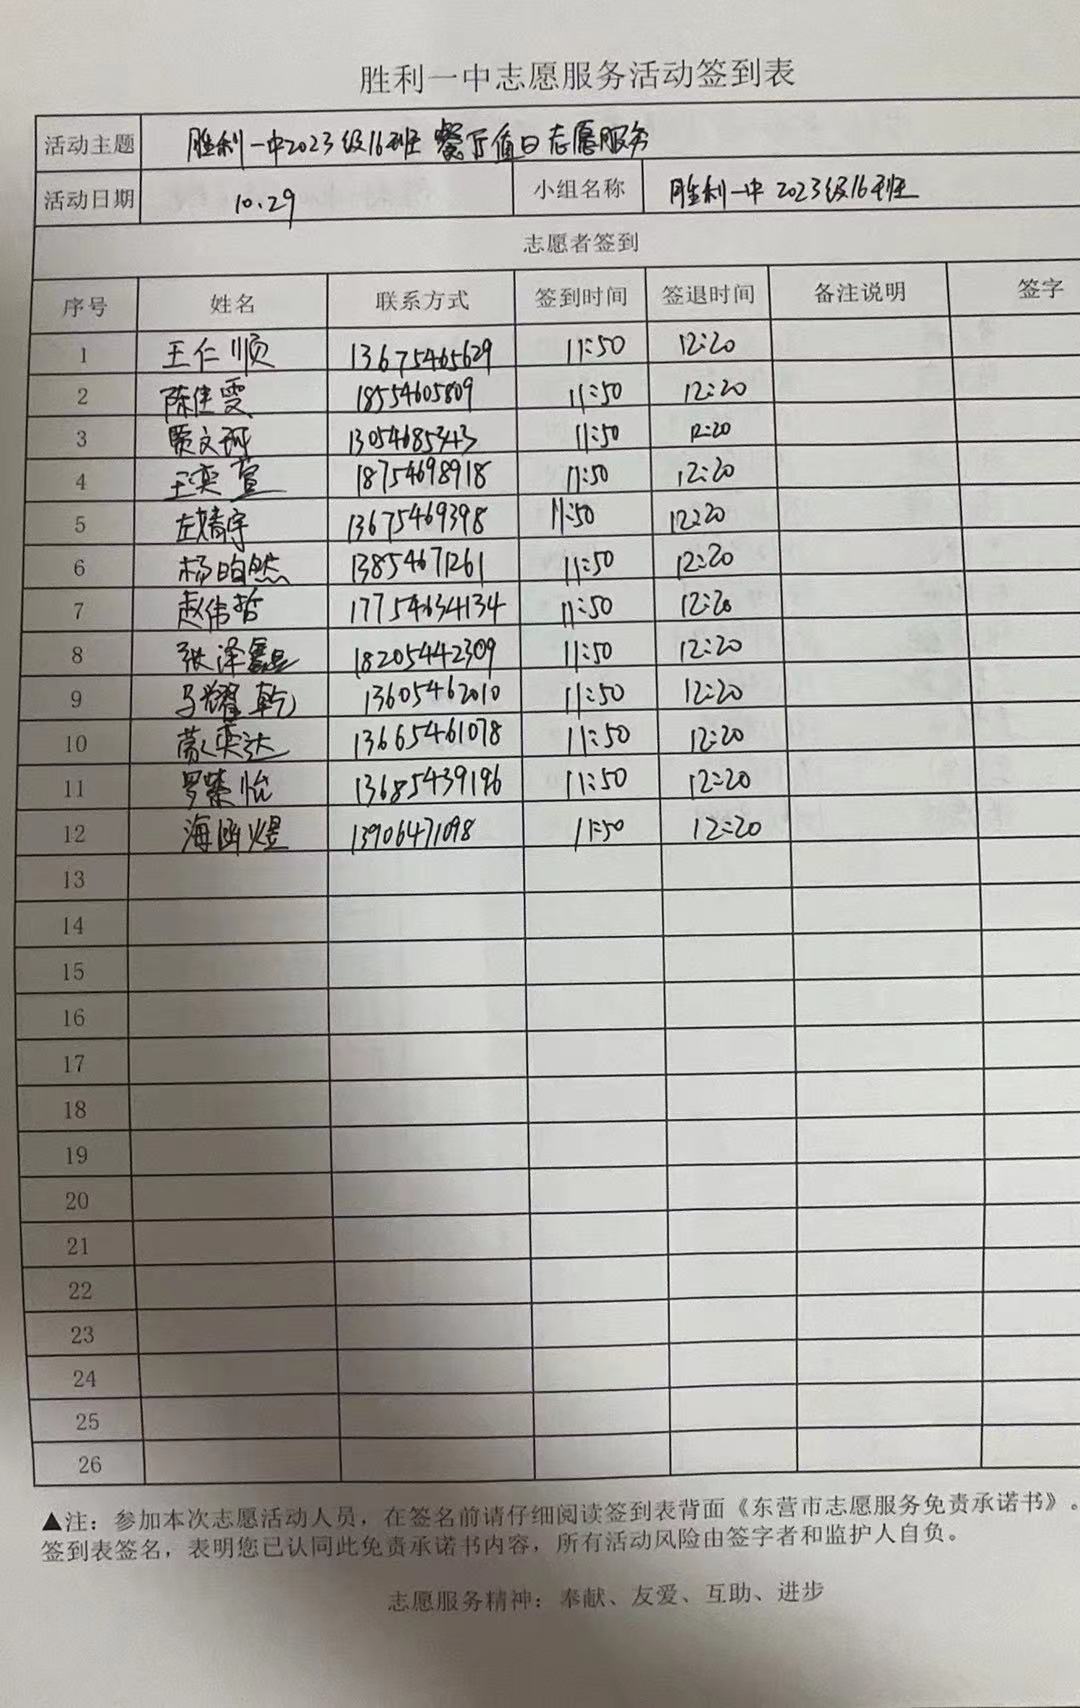 胜利一中志愿服务活动签到表
活动主题 胜利一中2023级16班 餐厅值日志愿服务
活动日期 10.29 小组名称 胜利一中 2023级16班
志愿者签到
序号 姓名 联系方式 签到时间 签退时间 备注说明 签字
1 王仁顺 13675465629 11:50 12:20
2 陈佳雯 18554605809 11:50 12:20
3 贾文珂 13054685343 11:50 12:20
4 王奕萱 18754698918 11:50 12:20
5 左婧宇 13675469398 11:50 12:20
6 杨昀然 13854671261 11:50 12:20
7 赵伟哲 17754634134 11:50 12:20
8 张泽鑫 18205442309 11:50 12:20
9 马耀乾 13605462010 11:50 12:20
10 奕达 13665461078 11:50 12:20
11 罗紫怡 13685439196 11:50 12:20
12 海函煜 13906471098 11:50 12:20
13
14
15
16
17
18
19
20
21
22
23
24
25
26
▲注：参加本次志愿活动人员，在签名前请仔细阅读签到表背面《东营市志愿服务免责承诺书》。
签到表签名，表明您已认同此免责承诺书内容，所有活动风险由签字者和监护人自负。
志愿服务精神：奉献、友爱、互助、进步